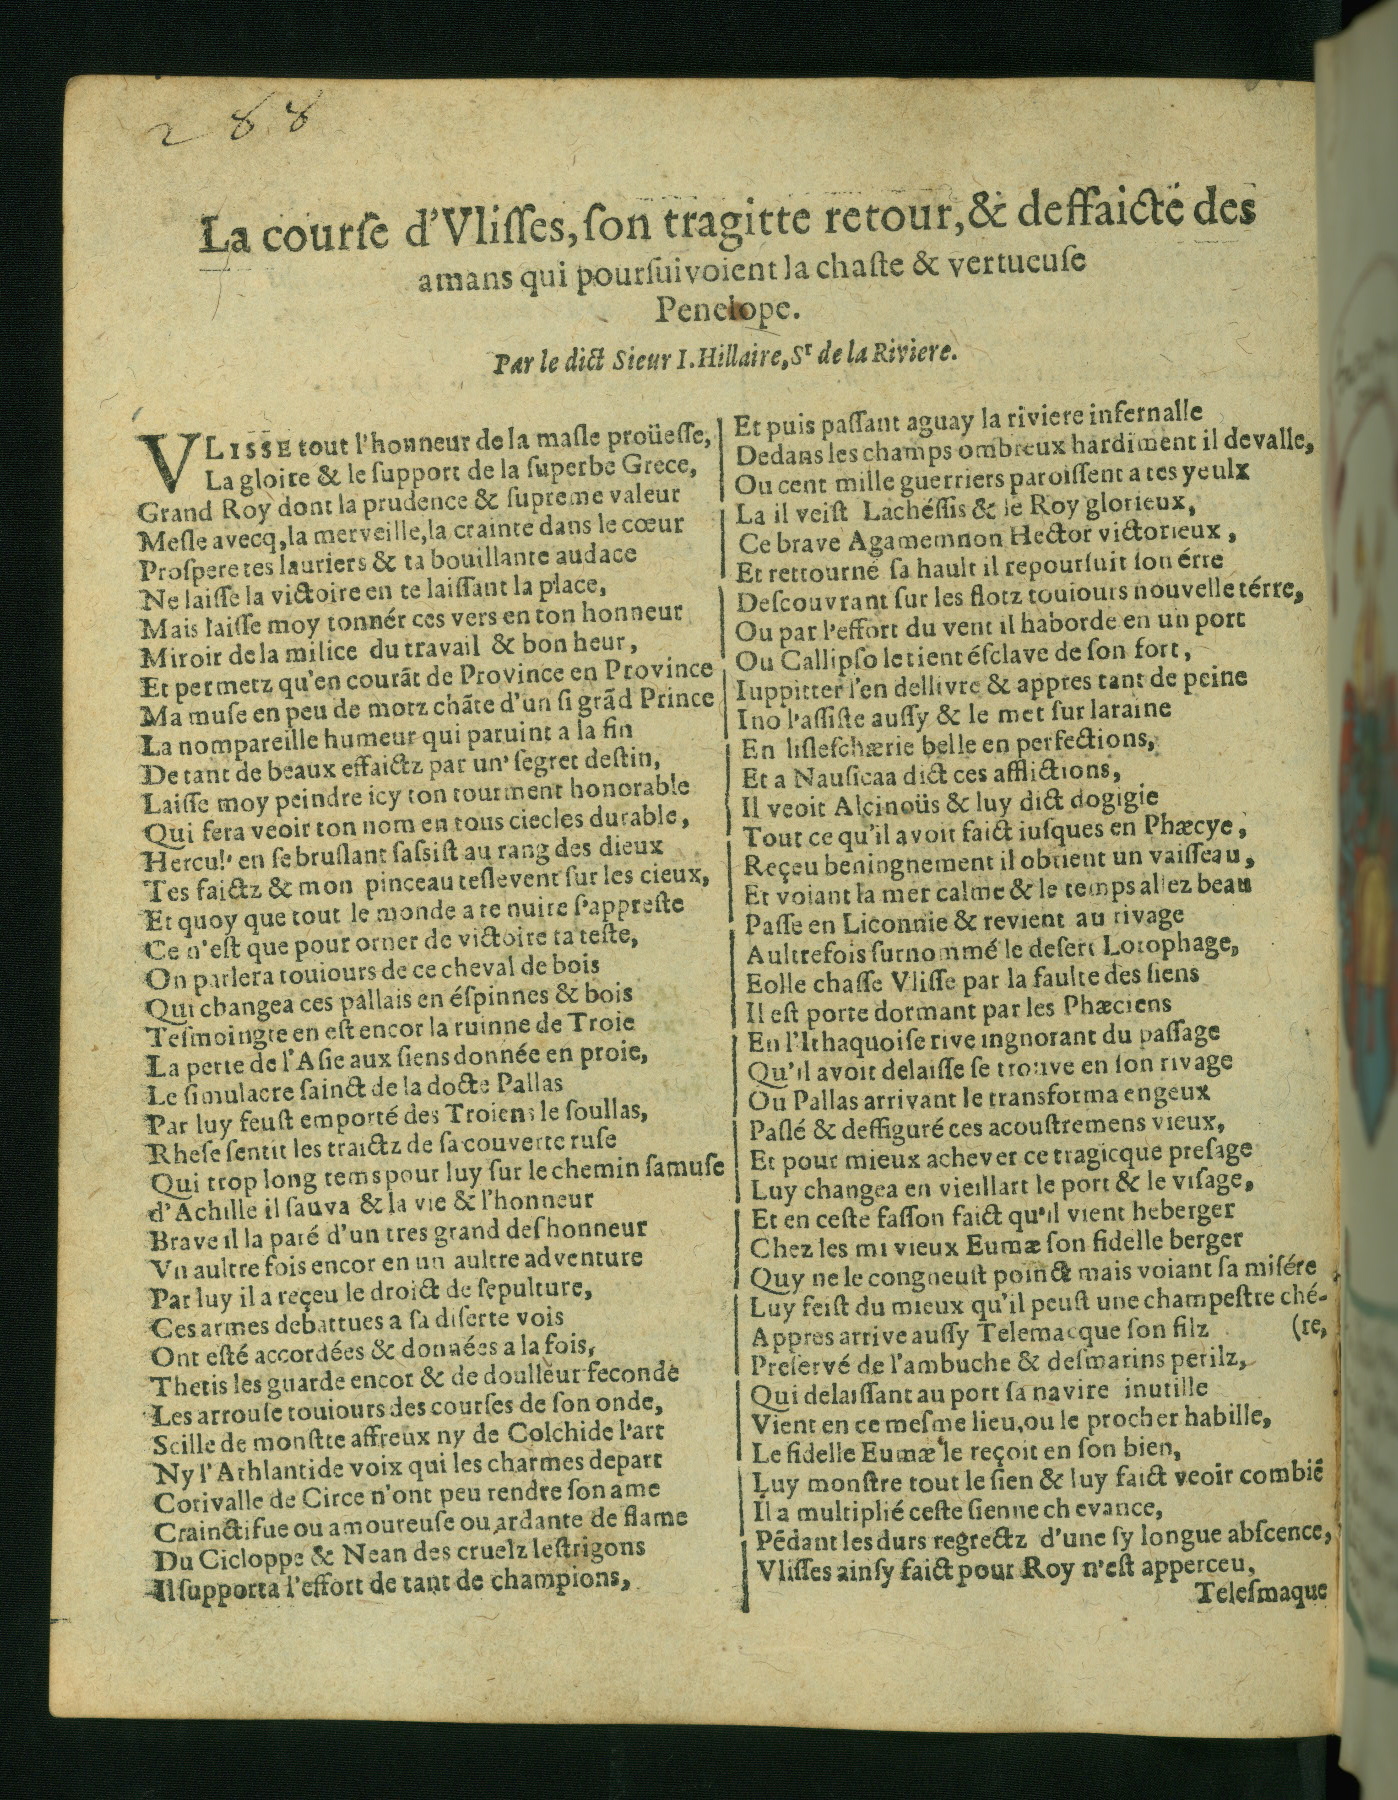 288
La courſe d'Vliſſes, ſon tragitte retour, & deffaicte des
amans qui pourſuivoient la chaſte & vertueuſe
Penelope.
Par le dict Sieur I. Hillaire, Sr de la Riviere.
VLISSE tout l'honneur de la maſle proüeſſe,
La gloire & le ſupport de la ſuperbe Grece,
Grand Roy dont la prudence & ſupreme valeur
Meſle avecq, la merveille, la crainte dans le cœur
Proſpere tes lauriers & ta bouillante audace
Ne laiſſe la victoire en te laiſſant la place,
Mais laiſſe moy tonnér ces vers en ton honneur
Miroir de la milice du travail & bon heur,
Et permetz qu'en courãt de Province en Province
Ma muſe en peu de motz chãte d'un ſi grãd Prince
La nompareille humeur qui paruint a la fin
De tant de beaux effaictz par un' ſegret deſtin,
Laiſſe moy peindre icy ton tourment honorable
Qui fera veoir ton nom en tous ciecles durable,
Hercul' en ſe bruſlant ſaſsiſt au rang des dieux
Tes faictz & mon pinceau teſlevent ſur les cieux,
Et quoy que tout le monde a te nuire ſ'appreſte
Ce n'eſt que pour orner de victoire ta teſte,
On parlera touiours de ce cheval de bois
Qui changea ces pallais en éſpinnes & bois
Teſmoingte en eſt encor la ruinne de Troie
La perte de l'Aſie aux ſiens donnée en proie,
Le ſimulacre ſainct de la docte Pallas
Par luy feuſt emporté des Troiens le ſoullas,
Rheſe ſentit les traictz de ſa couverte ruſe
Qui trop long tems pour luy ſur le chemin ſamuſe
d'Achille il ſauva & la vie & l'honneur
Brave il la paré d'un tres grand deſhonneur
Vn aultre fois encor en un aultre adventure
Par luy il a reçeu le droict de ſepulture,
Ces armes debattues a ſa diſerte vois
Ont eſté accordées & données a la fois,
Thetis les guarde encor & de doulleur feconde
Les arrouſe touiours des courſes de ſon onde,
Scille de monſtte affreux ny de Colchide l'art
Ny l'Athlantide voix qui les charmes depart
Corivalle de Circe n'ont peu rendre ſon ame
Crainctifue ou amoureuſe ou ardante de flame
Du Cicloppe & Nean des cruelz leſtrigons
Il ſupporta l'effort de tant de champions,
Et puis paſſant aguay la riviere infernalle
Dedans les champs ombreux hardiment il devalle,
Ou cent mille guerriers paroiſſent a tes yeulx
La il veiſt Lachéſſis & le Roy glorieux,
Ce brave Agamemnon Hector victorieux,
Et rettourné ſa hault il repourſuit ſon érre
Deſcouvrant ſur les flotz touiours nouvelle térre,
Ou par l'effort du vent il haborde en un port
Ou Callipſo le tient éſclave de ſon fort,
Iuppitter l'en dellivre & appres tant de peine
Ino l'aſſiſte auſſy & le met ſur laraine
En liſleſchærie belle en perfections,
Et a Nauſicaa dict ces afflictions,
Il veoit Alcinoüs & luy dict dogigie
Tout ce qu'il avoit faict iuſques en Phæcye,
Reçeu beningnement il obtient un vaiſſeau,
Et voiant la mer calme & le temps allez beau
Paſſe en Liconnie & revient au rivage
Aultrefois ſurnommé le deſert Lotophage,
Eolle chaſſe Vliſſe par la faulte des ſiens
Il eſt porte dormant par les Phæciens
En l'Ithaquoiſe rive ingnorant du paſſage
Qu'il avoit delaiſſe ſe trouve en ſon rivage
Ou Pallas arrivant le transforma en geux
Paſlé & deffiguré ces acouſtremens vieux,
Et pour mieux achever ce tragicque preſage
Luy changea en vieillart le port & le viſage,
Et en ceſte faſſon faict qu'il vient heberger
Chez les mi vieux Eumæ ſon fidelle berger
Quy ne le congneuſt poinct mais voiant ſa miſére
Luy feiſt du mieux qu'il peuſt une champeſtre ché-
Appres arrive auſſy Telemacque ſon filz (re,
Preſervé de l'ambuche & deſmarins perilz,
Qui delaiſſant au port ſa navire inutille
Vient en ce meſme lieu, ou le procher habille,
Le fidelle Eumæ le reçoit en ſon bien,
Luy monſtre tout le ſien & luy faict veoir combiẽ
Il a multiplié ceſte ſienne chevance,
Pẽdant les durs regrectz d'une ſy longue abſcence,
Vliſſes ainſy faict pour Roy n'eſt apperceu,
Teleſmaque